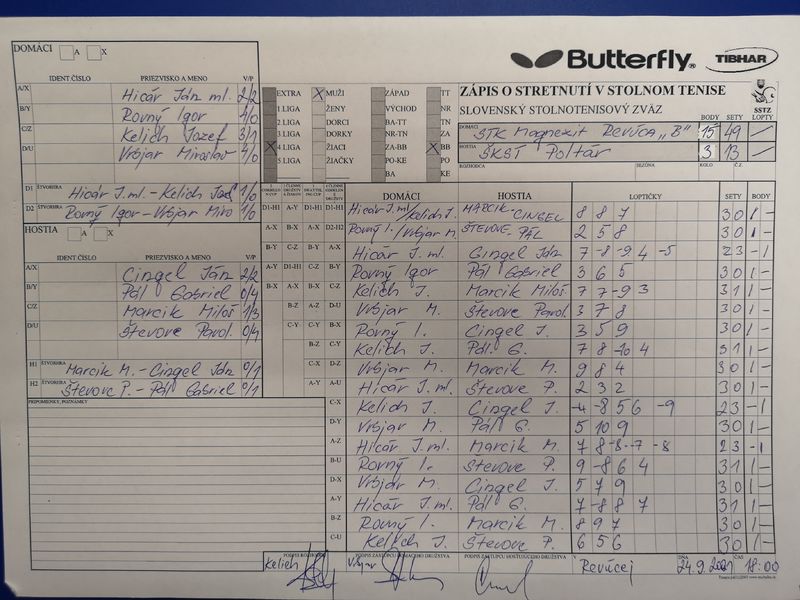 DOMÁCI A X
Butterfly® TIBHAR
IDENT ČÍSLO PRIEZVISKO A MENO V/P
A/X Hicár Ján ml. 2/2
B/Y Rovný Igor 4/0
C/Z Kelich Jozef 3/1
D/U Vrbjar Miroslav 4/0
EXTRA X MUŽI ZÁPAD TT
1 LIGA ŽENY VÝCHOD NR
2 LIGA DORCI BA-TT TN
3 LIGA DORKY NR-TN ZA
X 4 LIGA ŽIACI ZA-BB X BB
5 LIGA ŽIAČKY PO-KE PO
BA KE
ZÁPIS O STRETNUTÍ V STOLNOM TENISE
SLOVENSKÝ STOLNOTENISOVÝ ZVÄZ
SSTZ
BODY SETY LOPTY
DOMÁCI STK Magnezit Revúca „B" 15 49 —
HOSTIA ŠKST Poltár 3 13 —
ROZHODCA SEZÓNA KOLO Č.Z.
D1 ŠTVORHRA Hicár J.ml - Kelich Jozef 1/0
D2 ŠTVORHRA Rovný Igor - Vrbjar Miro 1/0
HOSTIA A X
IDENT ČÍSLO PRIEZVISKO A MENO V/P
A/X Cingel Ján 2/2
B/Y Pál Gabriel 0/4
C/Z Marcik Miloš 1/3
D/U Števove Pavol 0/4
H1 ŠTVORHRA Marcik M. - Cingel Ján 0/1
H2 ŠTVORHRA Števove P. - Pál Gabriel 0/1
PRIPOMIENKY, POZNÁMKY
DOMÁCI HOSTIA LOPTIČKY SETY BODY
D1-H1 A-Y D1-H1 D1-H1 Hicár J.ml/Kelich J. MARCIK-CINGEL 8 8 7 3 0 1 -
A-X B-X A-X D2-H2 Rovný I./Vrbjar M. ŠTEVOVE-PÁL 2 5 8 3 0 1 -
B-Y C-Z B-Y A-X Hicár J. ml. Cingel Ján 7 -8 -9 4 -5 2 3 - 1
A-Y D1-H1 C-Z B-Y Rovný Igor Pál Gabriel 3 6 5 3 0 1 -
B-X A-X B-X C-Z Kelich J. Marcik Miloš 7 7 -9 3 3 1 1 -
B-Z A-Z D-U Vrbjar M. Števove Pavol 3 7 8 3 0 1 -
C-Y C-Y B-X Rovný I. Cingel J. 3 5 9 3 0 1 -
B-Z C-Y Kelich J. Pál G. 7 8 -10 4 3 1 1 -
C-X D-Z Vrbjar M. Marcik M. 9 8 4 3 0 1 -
A-Y A-U Hicár J. ml. Števove P. 2 3 2 3 0 1 -
C-X Kelich J. Cingel J. -4 -8 5 6 -9 2 3 - 1
D-Y Vrbjar M. Pál G. 5 10 9 3 0 1 -
A-Z Hicár J. ml. Marcik M. 7 8 -8 -7 -8 2 3 - 1
B-U Rovný I. Števove P. 9 -8 6 4 3 1 1 -
D-X Vrbjar M. Cingel J. 5 7 9 3 0 1 -
A-Y Hicár J. ml. Pál G. 7 -8 8 7 3 1 1 -
B-Z Rovný I. Marcik M. 8 9 7 3 0 1 -
C-U Kelich J. Števove P. 6 5 6 3 0 1 -
PODPIS ROZHODCU PODPIS ZÁSTUPCU DOMÁCEHO DRUŽSTVA PODPIS ZÁSTUPCU HOSŤUJÚCEHO DRUŽSTVA DŇA ČAS
Kelich Vrbjar Revúcej 24.9.2021 18:00